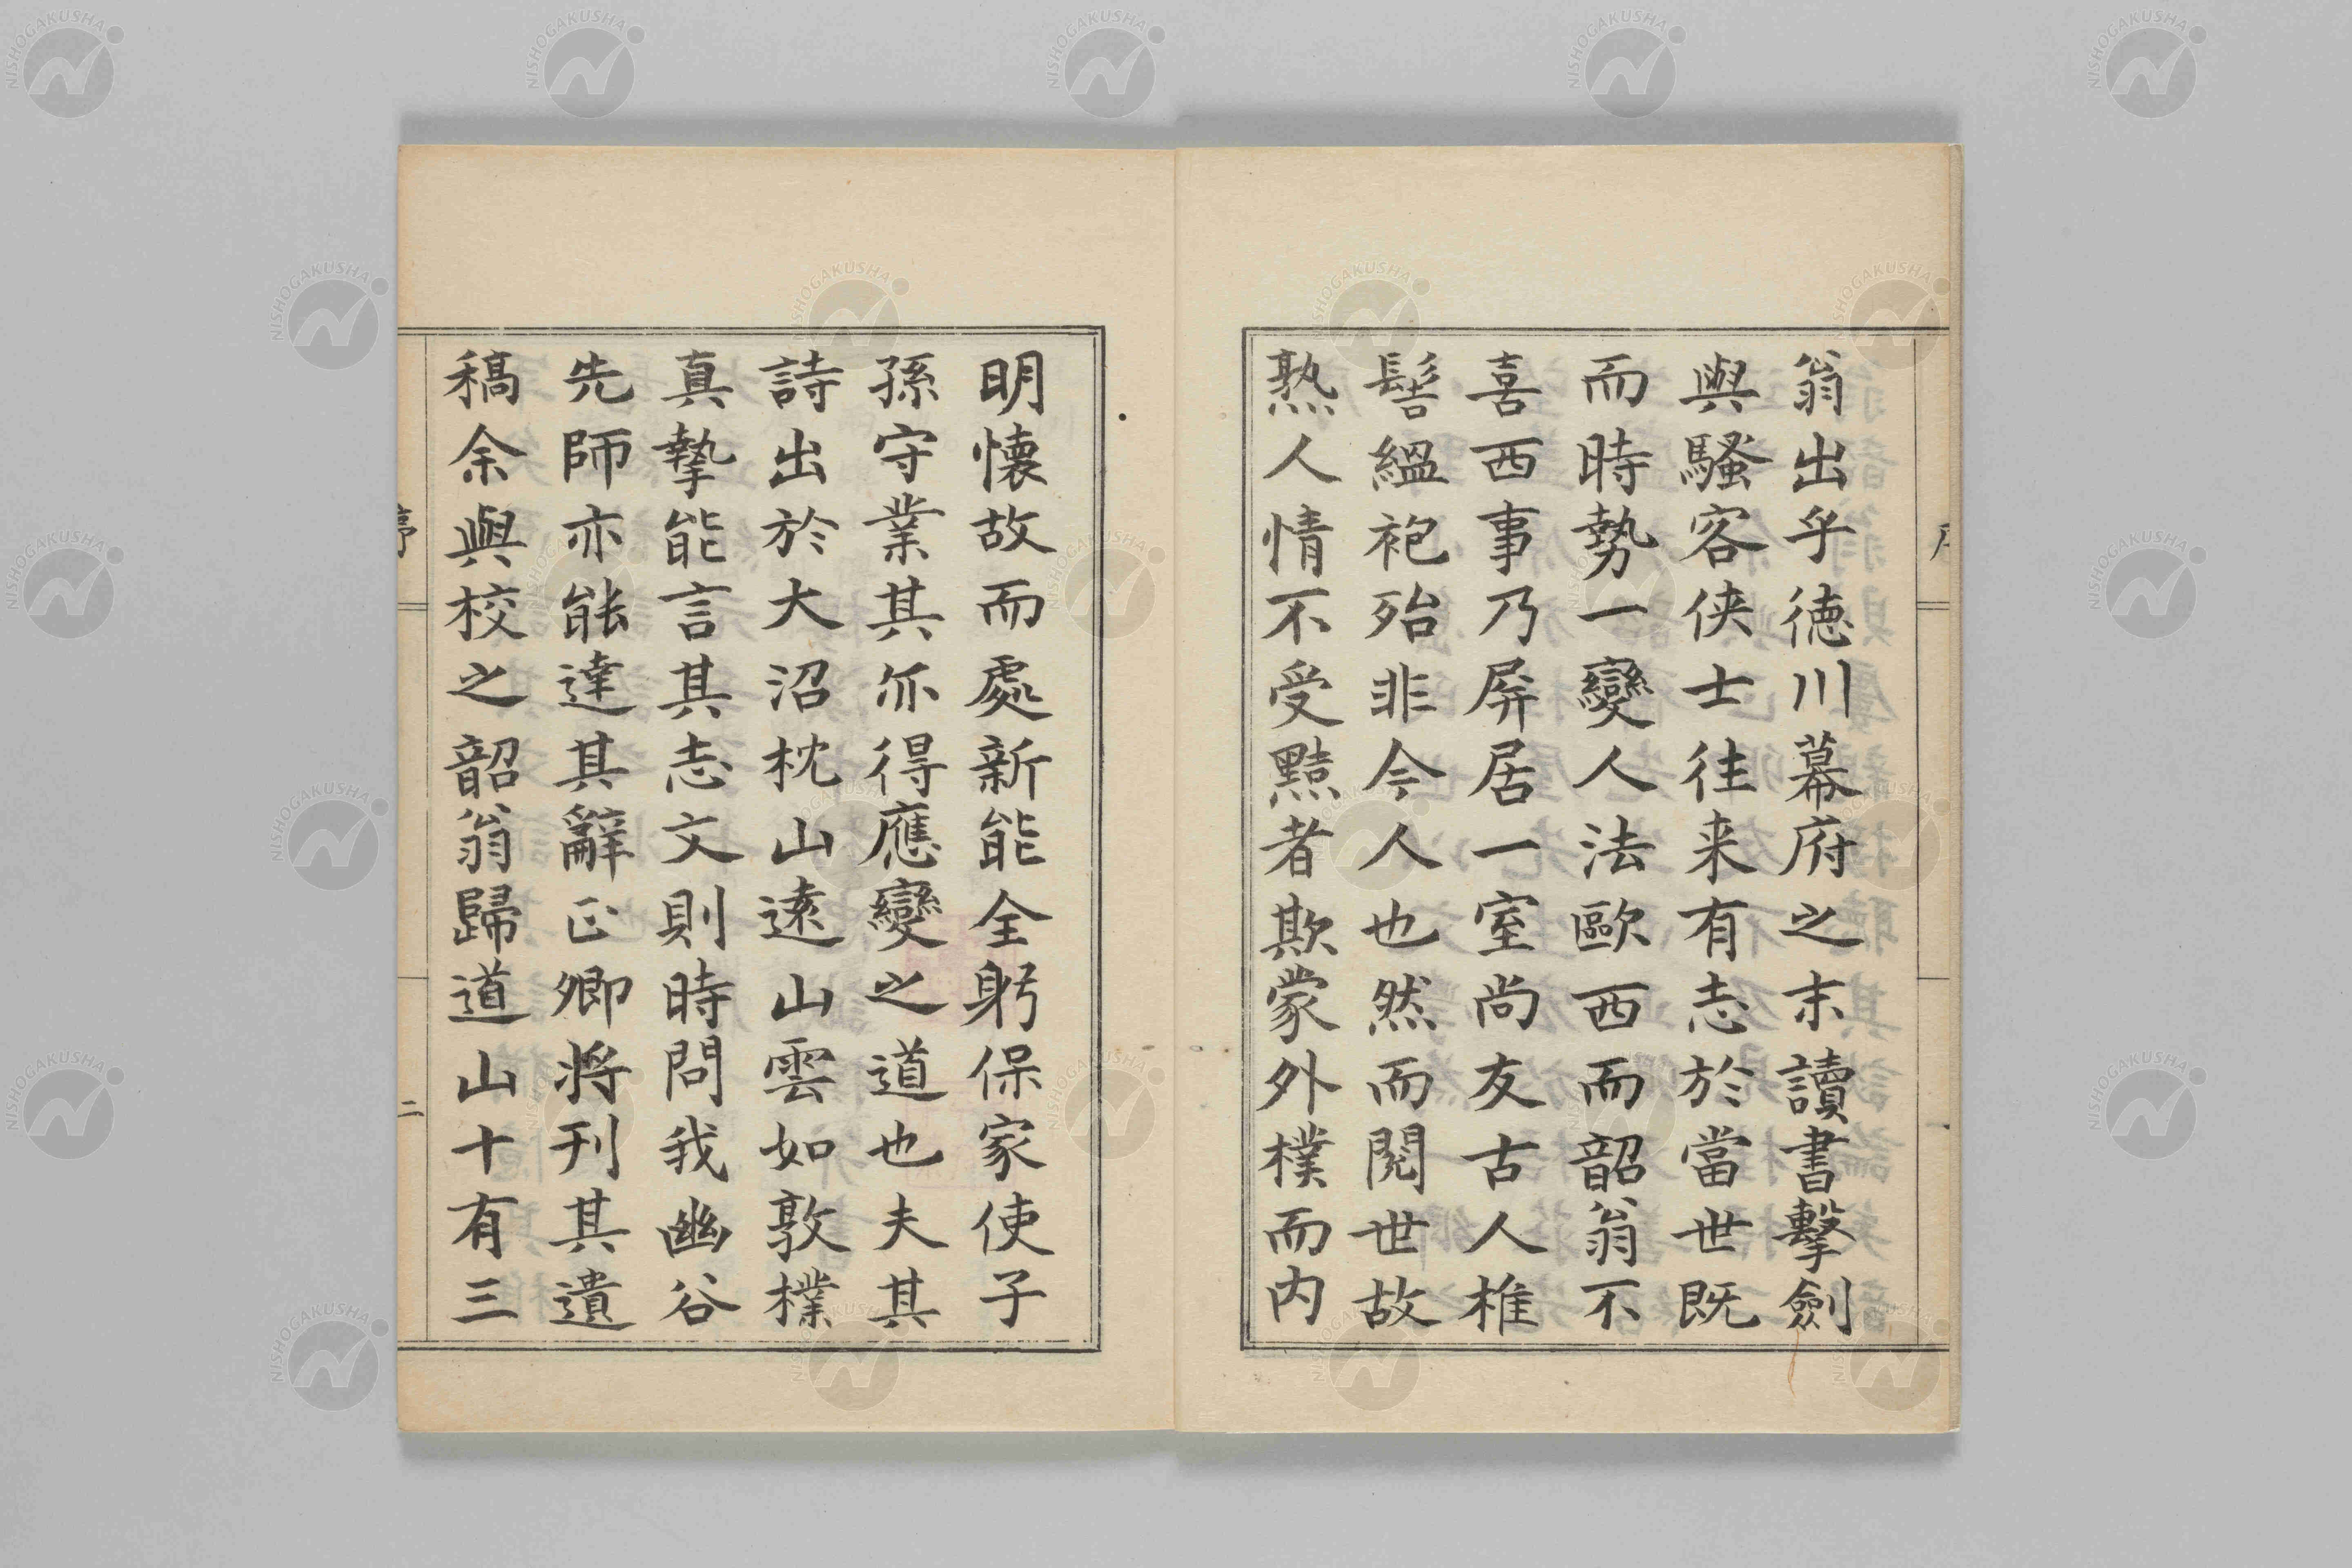 翁出乎徳川幕府之末讀書擊劍
與騷客俠士往来有志於當世既
而時勢一變人法歐西而韶翁不
喜西事乃屏居一室尚友古人椎
髻縕袍殆非今人也然而閱世故
熟人情不受黠者欺蒙外樸而内
明懐故而處新能全躬保家使子
孫守業其亦得應變之道也夫其
詩出於大沼枕山遠山雲如敦樸
真摯能言其志文則時問我幽谷
先師亦能達其辭正卿將刊其遺
稿余與校之韶翁歸道山十有三
序
二
NISHOGAKUSHA